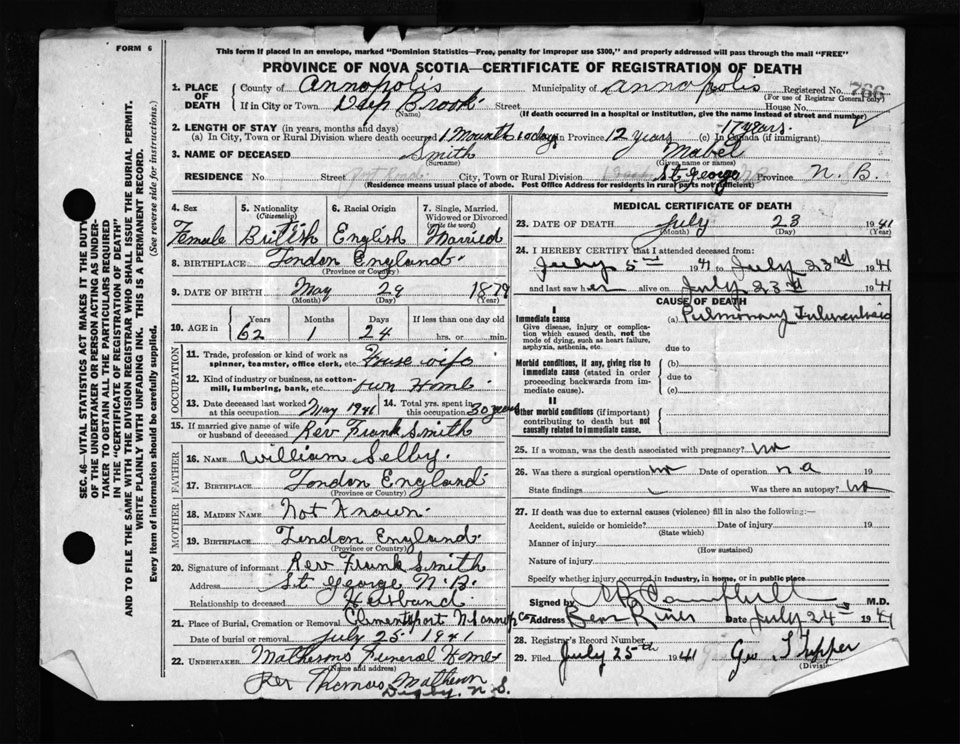 FORM 6
This form if placed in an envelope, marked "Dominion Statistics—Free, penalty for improper use $300," and properly addressed will pass through the mail "FREE"
PROVINCE OF NOVA SCOTIA—CERTIFICATE OF REGISTRATION OF DEATH
1. PLACE OF DEATH County of Annopolis Municipality of Annopolis Registered No. 766
(For use of Registrar General only)
If in City or Town Deep Brook Street House No.
(Name) (If death occurred in a hospital or institution, give the name instead of street and number)
2. LENGTH OF STAY (in years, months and days)
(a) In City, Town or Rural Division where death occurred 1 Month 10 days in Province 12 years (c) In Canada (if immigrant) 17 years.
3. NAME OF DECEASED Smith Mabel
(Surname) (Given name or names)
RESIDENCE No. Street City, Town or Rural Division St George Province N.B.
(Residence means usual place of abode. Post Office Address for residents in rural parts not sufficient)
SEC. 46—VITAL STATISTICS ACT MAKES IT THE DUTY
OF THE UNDERTAKER OR PERSON ACTING AS UNDER-
TAKER TO OBTAIN ALL THE PARTICULARS REQUIRED
IN THE "CERTIFICATE OF REGISTRATION OF DEATH"
AND TO FILE THE SAME WITH THE DIVISION REGISTRAR WHO SHALL ISSUE THE BURIAL PERMIT.
WRITE PLAINLY WITH UNFADING INK. THIS IS A PERMANENT RECORD.
Every item of information should be carefully supplied. (See reverse side for instructions.)
4. Sex 5. Nationality (Citizenship) 6. Racial Origin 7. Single, Married, Widowed or Divorced (write the word)
Female British English Married
8. BIRTHPLACE London England
(Province or Country)
9. DATE OF BIRTH May 29 1879
(Month) (Day) (Year)
10. AGE in Years Months Days If less than one day old
62 1 24 hrs. or min.
OCCUPATION
11. Trade, profession or kind of work as spinner, teamster, office clerk, etc. House wife
12. Kind of industry or business, as cotton-mill, lumbering, bank, etc. own Home
13. Date deceased last worked at this occupation May 1941 14. Total yrs. spent in this occupation 30 years
15. If married give name of wife or husband of deceased Rev Frank Smith
FATHER
16. NAME William Selby
17. BIRTHPLACE London England
(Province or Country)
MOTHER
18. MAIDEN NAME Not Known
19. BIRTHPLACE London England
(Province or Country)
20. Signature of informant Rev Frank Smith
Address St George N.B.
Relationship to deceased Husband
21. Place of Burial, Cremation or Removal Clementsport N.S. Annop Co
Date of burial or removal July 25 1941
22. UNDERTAKER Mathesons Funeral Home
(Name and address)
Per Thomas Matheson
Digby, N.S.
MEDICAL CERTIFICATE OF DEATH
23. DATE OF DEATH July 23 1941
(Month) (Day) (Year)
24. I HEREBY CERTIFY that I attended deceased from:
July 5th 1941 to July 23rd 1941
and last saw her alive on July 23rd 1941
CAUSE OF DEATH
I
Immediate cause (a) Pulmonary Tuberculosis
Give disease, injury or complication which caused death, not the mode of dying, such as heart failure, asphyxia, asthenia, etc. due to
Morbid conditions, if any, giving rise to immediate cause (stated in order proceeding backwards from immediate cause). (b)
due to
(c)
II
Other morbid conditions (if important) contributing to death but not causally related to immediate cause.
25. If a woman, was the death associated with pregnancy? no
26. Was there a surgical operation no Date of operation n a 19
State findings Was there an autopsy? no
27. If death was due to external causes (violence) fill in also the following:—
Accident, suicide or homicide? Date of injury 19
(State which)
Manner of injury
(How sustained)
Nature of injury
Specify whether injury occurred in Industry, in home, or in public place
Signed by Campbell M.D.
Address Bear River Date July 24th 1941
28. Registrar's Record Number
29. Filed July 25th 1941 Geo S Tupper
(Division